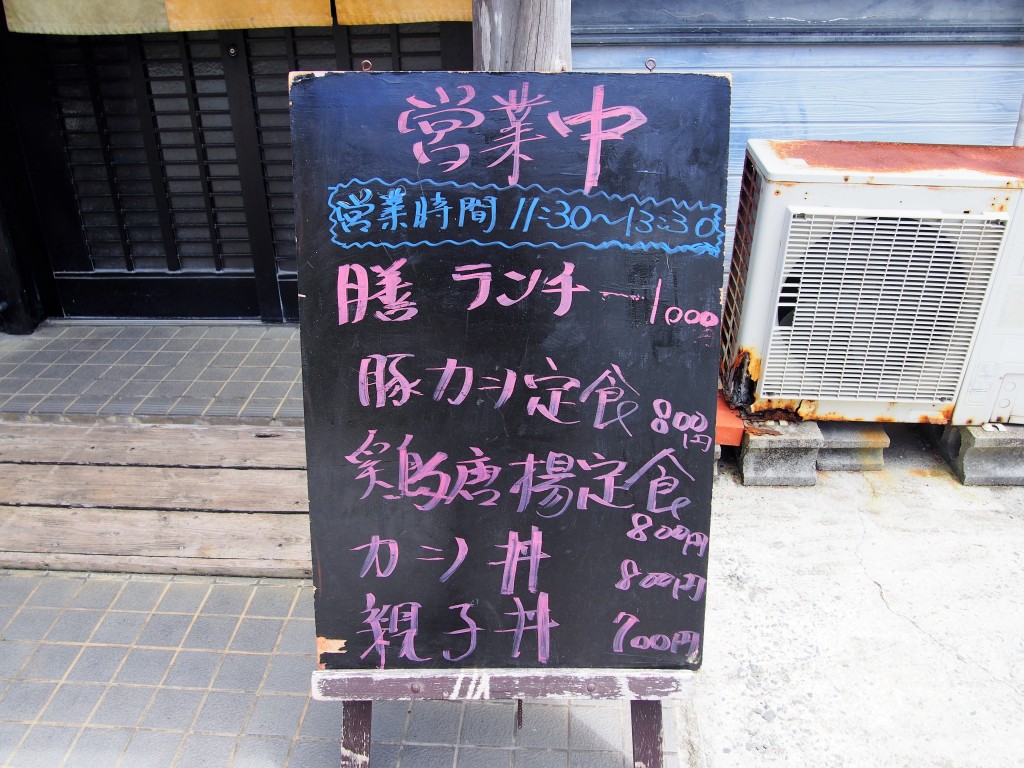 営業中
営業時間 11:30〜13:30
膳 ランチ — 1000
豚カシ定食 800円
鶏唐揚定食 800円
カシ丼 800円
親子丼 700円